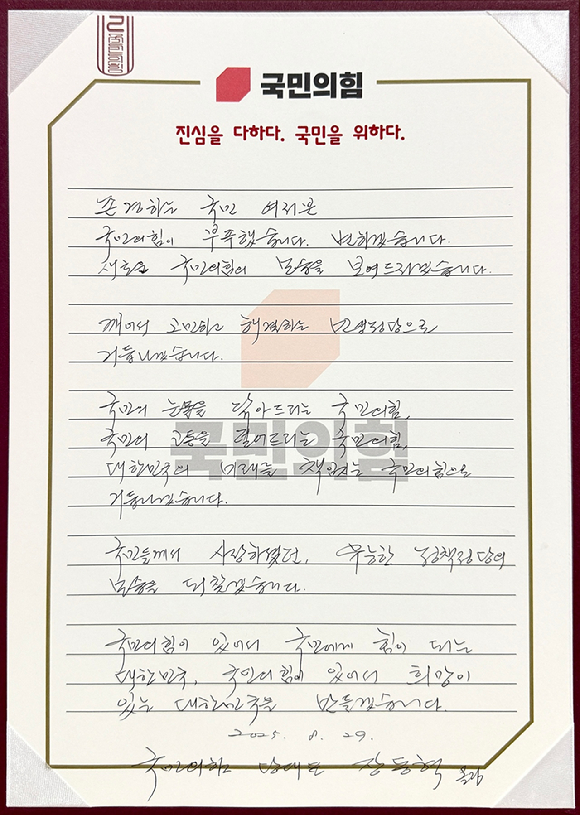 국민의힘
진심을 다하다. 국민을 위하다.
존경하는 국민 여러분
국민의힘이 부족했습니다. 변하겠습니다.
새로운 국민의힘의 모습을 보여드리겠습니다.
깨어서 고민하고 해결하는 민생정당으로
거듭나겠습니다.
국민의 눈물을 닦아드리는 국민의힘,
국민의 고통을 덜어드리는 국민의힘,
대한민국의 미래를 책임지는 국민의힘으로
거듭나겠습니다.
국민들께서 사랑하셨던, 유능한 정책정당의
모습을 되찾겠습니다.
국민의힘이 있어서 국민에게 힘이 되는
대한민국, 국민의힘이 있어서 희망이
있는 대한민국을 만들겠습니다.
2025. 8. 29.
국민의힘 당대표 장동혁 올림
국민의힘